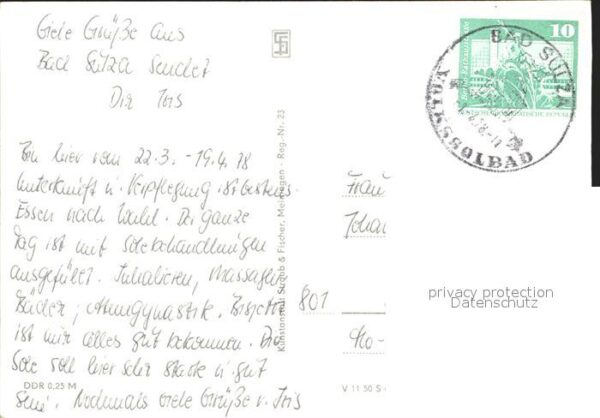 Viele Grüße aus
Bad Sulza sendet
Dir Iris
Bin hier vom 22.3. - 19.4.78
Unterkunft u. Verpflegung ist bestens.
Essen nach Wahl. Der ganze
Tag ist mit Solebehandlungen
ausgefüllt. Inhalieren, Massagen
Bäder, Atemgymnastik. Bisher
ist mir alles gut bekommen. Die
Sole soll hier sehr stark u. gut
sein. Nochmals viele Grüße v. Iris
DDR 0,25 M
Kunstanstalt Straub & Fischer, Meiningen - Reg.-Nr. 23
V 11 50 S
10
BAD SULZA
VOLKSSOLBAD
Frau
801
privacy protection
Datenschutz